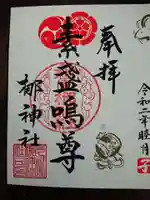 奉拝
素盞嗚尊
都神社
令和二年睦月
子